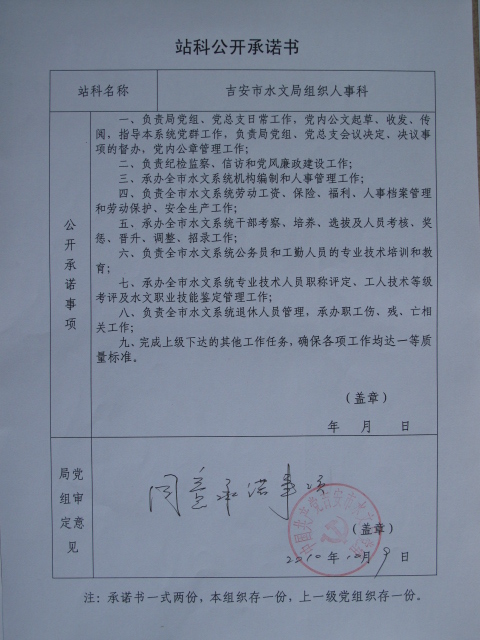 站科公开承诺书
站科名称
吉安市水文局组织人事科
公开承诺事项
一、负责局党组、党总支日常工作，党内公文起草、收发、传
阅，指导本系统党群工作，负责局党组、党总支会议决定、决议事
项的督办，党内公章管理工作；
二、负责纪检监察、信访和党风廉政建设工作；
三、承办全市水文系统机构编制和人事管理工作；
四、负责全市水文系统劳动工资、保险、福利、人事档案管理
和劳动保护、安全生产工作；
五、承办全市水文系统干部考察、培养、选拔及人员考核、奖
惩、晋升、调整、招录工作；
六、负责全市水文系统公务员和工勤人员的专业技术培训和教
育；
七、承办全市水文系统专业技术人员职称评定、工人技术等级
考评及水文职业技能鉴定管理工作；
八、负责全市水文系统退休人员管理，承办职工伤、残、亡相
关工作；
九、完成上级下达的其他工作任务，确保各项工作均达一等质
量标准。
（盖章）
年 月 日
局党组审定意见
同意承诺事项
（盖章）
2010 年 10 月 9 日
注：承诺书一式两份，本组织存一份，上一级党组织存一份。